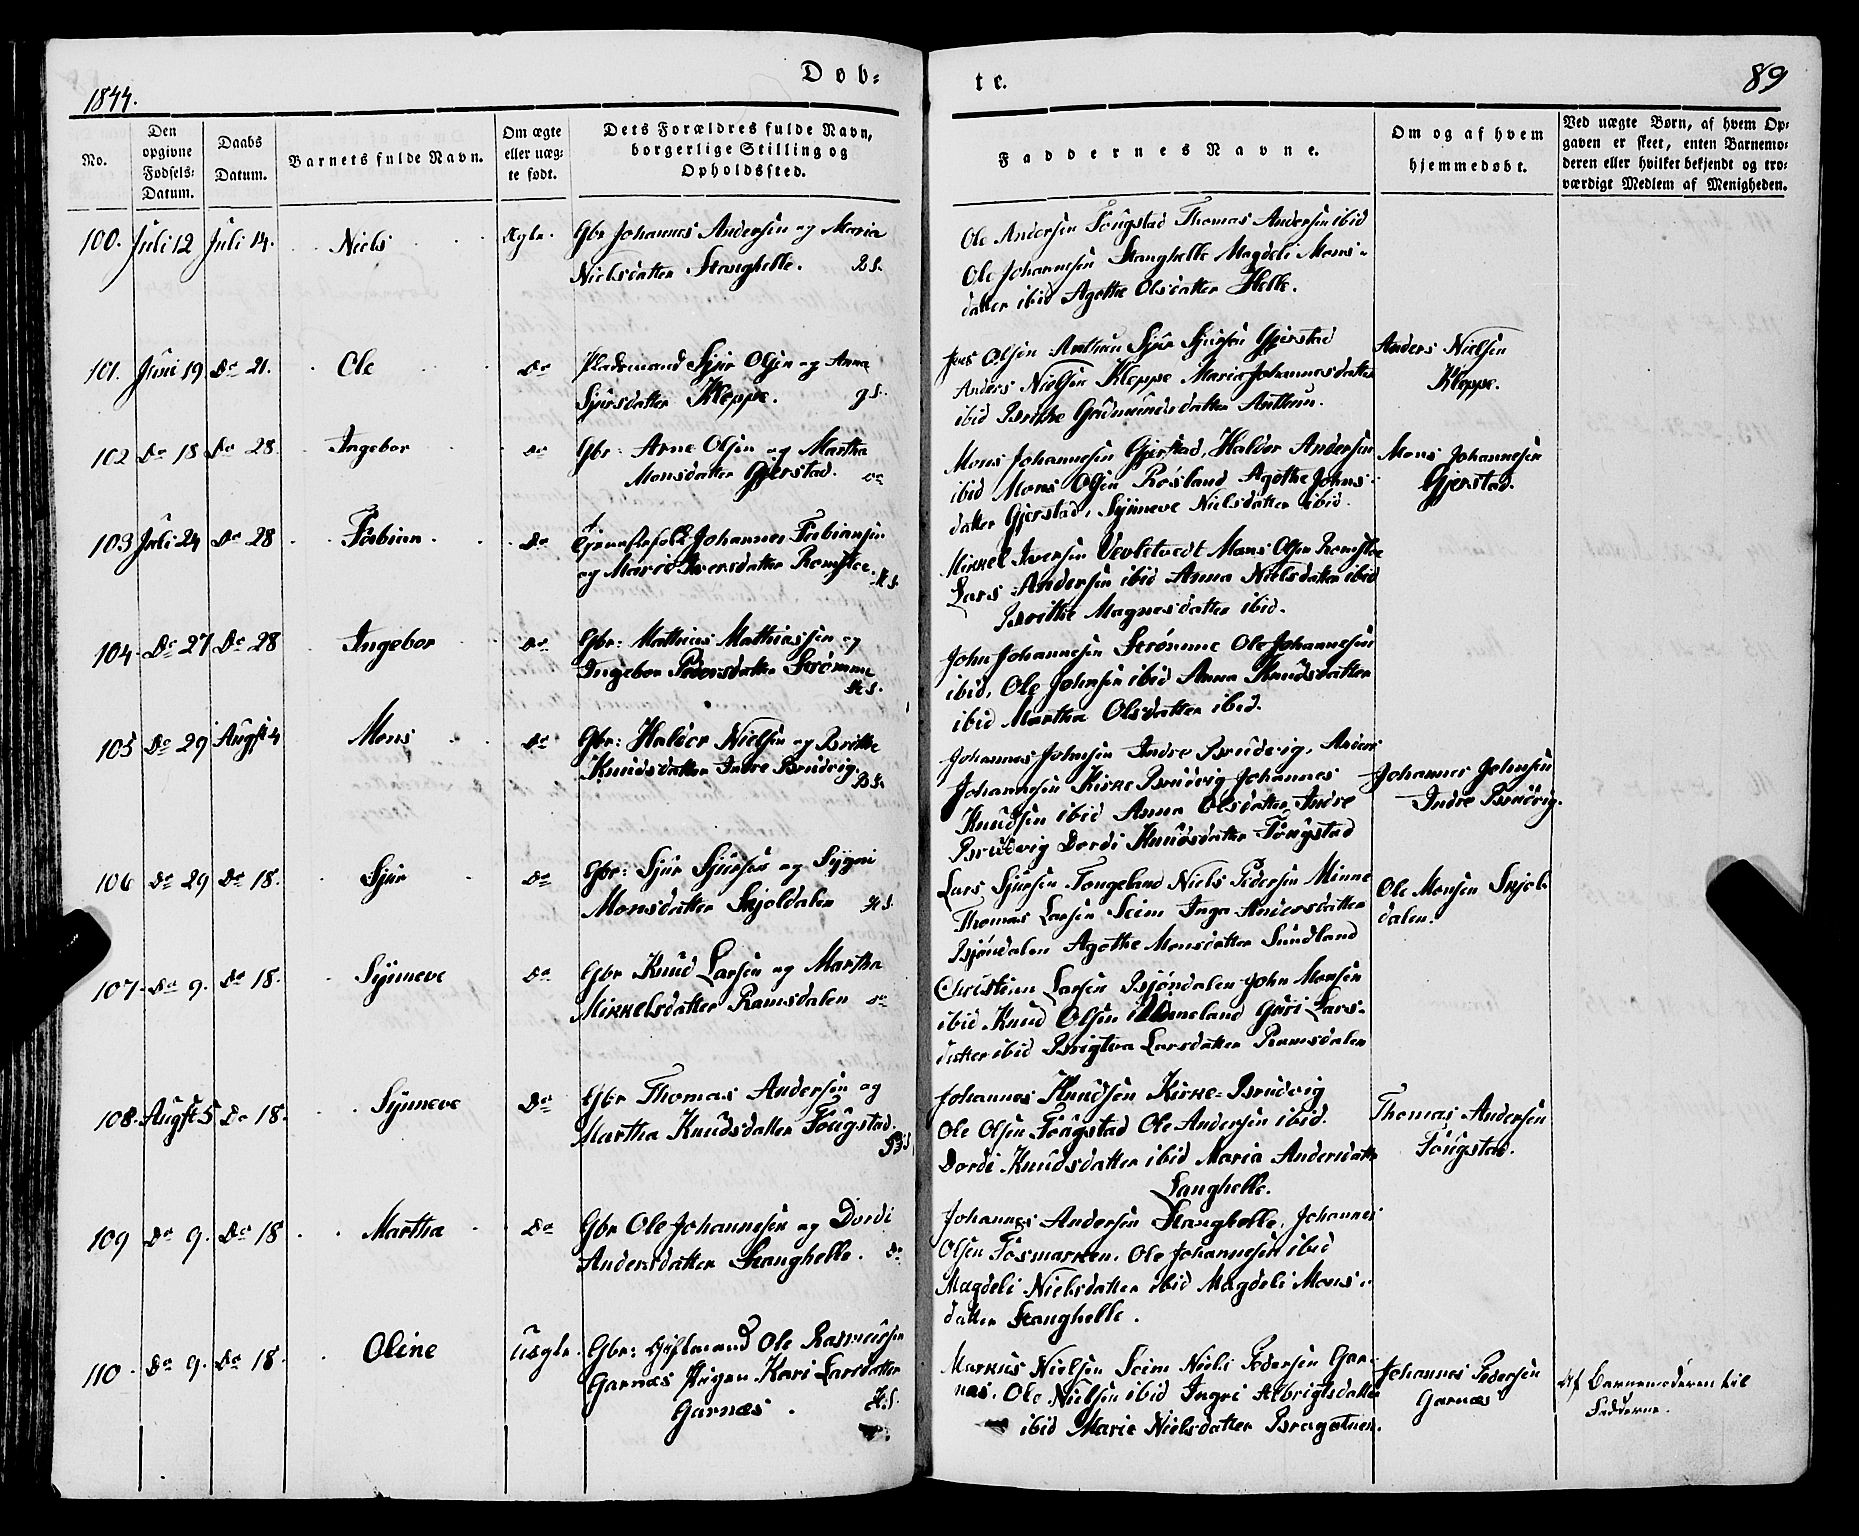 1844.
Døb-
te.
89
No.
Den opgivne Fødsels-Datum.
Daabs Datum.
Barnets fulde Navn.
Om ægte eller uægte født.
Dets Forældres fulde Navn, borgerlige Stilling og Opholdssted.
Faddernes Navne.
Om og af hvem hjemmedøbt.
Ved uægte Børn, af hvem Opgaven er skeet, enten Barnemoderen eller hvilket bekjendt og troværdigt Medlem af Menigheden.
100. Juli 12 Juli 14. Niels Ægte.
Gbr Johannes Andersen og Maria
Nielsdatter Stanghelle. B S.
Ole Andersen Fougstad Thomas Andersen ibid
Ole Johannesen Stanghelle Magdeli Mons-
datter ibid Agothe Olsdatter Helle.
101. Juni 19 Do 21. Ole Do
Pladsmand Sjur Olsen og Anna
Sjursdatter Kleppe. g S.
Olsen Sjur Sjursen Gjerstad
Anders Nielsen Kleppe Maria Johannesdatter
ibid Brithe Gudmundsdatter
Anders Nielsen
Kleppe.
102 Do 18 Do 28. Ingebor Do
Gbr: Arne Olsen og Martha
Monsdatter Gjerstad. Do
Mons Johannesen Gjerstad, Haldor Andersen
ibid Mons Olsen Røsland Agothe Johns-
datter Gjerstad, Synneve Nielsdatter ibid.
Mons Johannesen
Gjerstad.
103 Juli 24 Do 28 Fabian Do
Tjenestefolk Johannes Fabiansen
og Marie Iversdatter Romslee. H S.
Mikkel Iversen Mons Olsen Romslee
Lars Andersen ibid Anna Nielsdatter ibid
Brithe Magnesdatter ibid.
104. Do 27 Do 28 Ingebor Do
Gbr: Mathias Mathiassen og
Ingebor Pedersdatter Strømme
H S.
John Johannesen Strømme Ole Johannesen
ibid, Ole Johnsen ibid Anna Knudsdatter
ibid Martha Olsdatter ibid.
105 Do 29 Augst 4 Mons Do
Gbr: Haldor Nielsen og Brithe
Knudsdatter Indre Brudvig. B S.
Johannes Johnsen Indre Brudvig, Anders
Johannesen Kirke Brudvig Johannes
Knudsen ibid Anna Olsdatter Indre
Brudvig Dordi Knudsdatter Fougstad
Johannes Johnsen
Indre Brudvig.
106 Do 29 Do 18. Sjur Do
Gbr: Sjur Sjursen og Sygni
Monsdatter Skjoldalen H S.
Lars Sjursen Tongeland Niels Pedersen Minne
Thomas Larsen Seim Inga Andersdatter
Bjøndalen Agothe Monsdatter Sundland
Ole Monsen Skjol-
dalen.
107. Do 9. Do 18. Synneve Do
Gbr Knud Larsen og Martha
Mikkelsdatter Ramsdalen Do
Christian Larsen Bjøndalen John Monsen
ibid Knud Olsen Guri Lars-
datter ibid Brigtva Larsdatter Ramsdalen
108. Augst 5 Do 18. Synneve Do
Gbr Thomas Andersen og
Martha Knudsdatter Fougstad. B S.
Johannes Knudsen Kirke-Brudvig
Ole Olsen Fougstad Ole Andersen ibid.
Dordi Knudsdatter ibid Maria Andersdatter
Stanghelle.
Thomas Andersen
Fougstad.
109 Do 9. Do 18 Martha Do
Gbr Ole Johannesen og Dordi
Andersdatter Stanghelle. Do
Johannes Andersen Stanghelle, Johannes
Olsen Fosmarken. Ole Johannesen ibid
Magdeli Nielsdatter ibid Magdeli Mons-
datter Stanghelle.
110. Do 9. Do 18. Oline Uægte.
Gbr: Gift mand Ole Rasmussen
Garnæs Pigen Kari Larsdatter
Garnæs. H S.
Markus Nielsen Seim Niels Pedersen Gar-
næs. Ole Nielsen ibid Ingri Albrigtsdatter
ibid Marie Nielsdatter
Johannes Pedersen
Garnæs
Af Barnemoderen til
Fadderne.